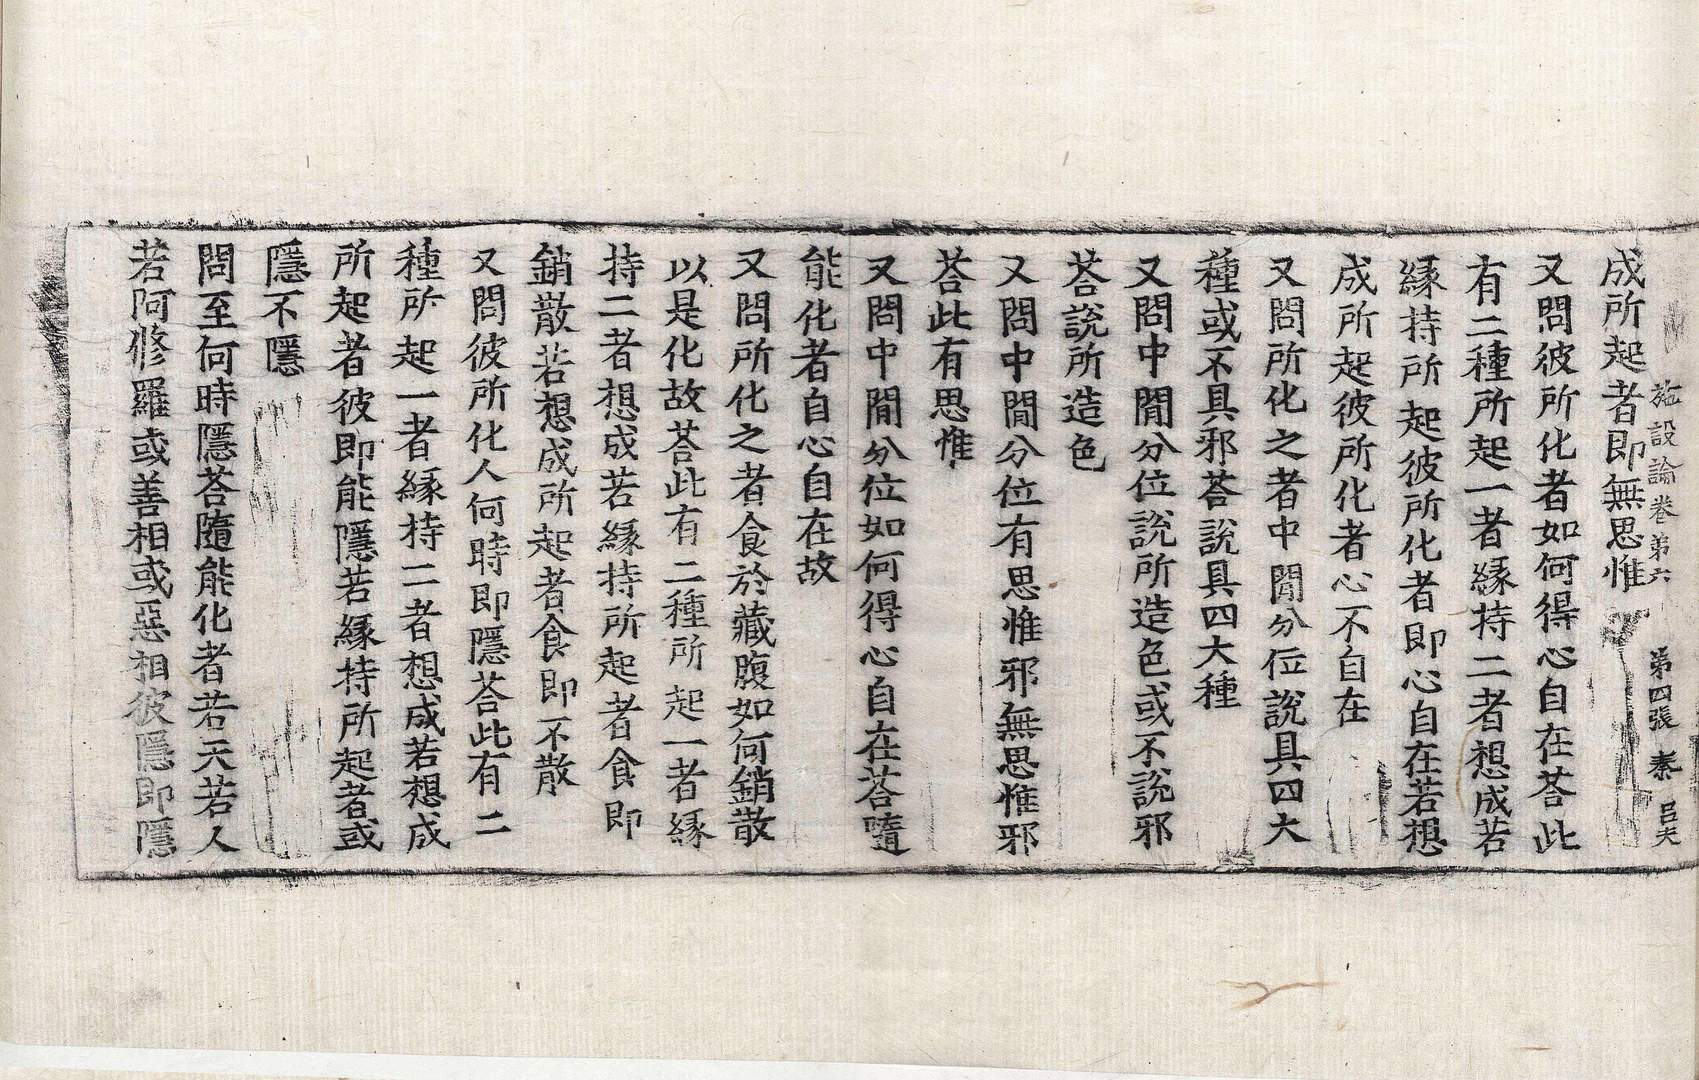 施設論卷第六　第四張　秦　呂夫
成所起者即無思惟
又問彼所化者如何得心自在荅此
有二種所起一者縁持二者想成若
縁持所起彼所化者即心自在若想
成所起彼所化者心不自在
又問所化之者中間分位說具四大
種或不具邪荅說具四大種
又問中間分位說所造色或不說邪
荅說所造色
又問中間分位有思惟邪無思惟邪
荅此有思惟
又問中間分位如何得心自在荅隨
能化者自心自在故
又問所化之者食於藏腹如何銷散
以是化故荅此有二種所起一者縁
持二者想成若縁持所起者食即
銷散若想成所起者食即不散
又問彼所化人何時即隱荅此有二
種所起一者縁持二者想成若想成
所起者彼即能隱若縁持所起者或
隱不隱
問至何時隱荅隨能化者若天若人
若阿修羅或善相或惡相彼隱即隱